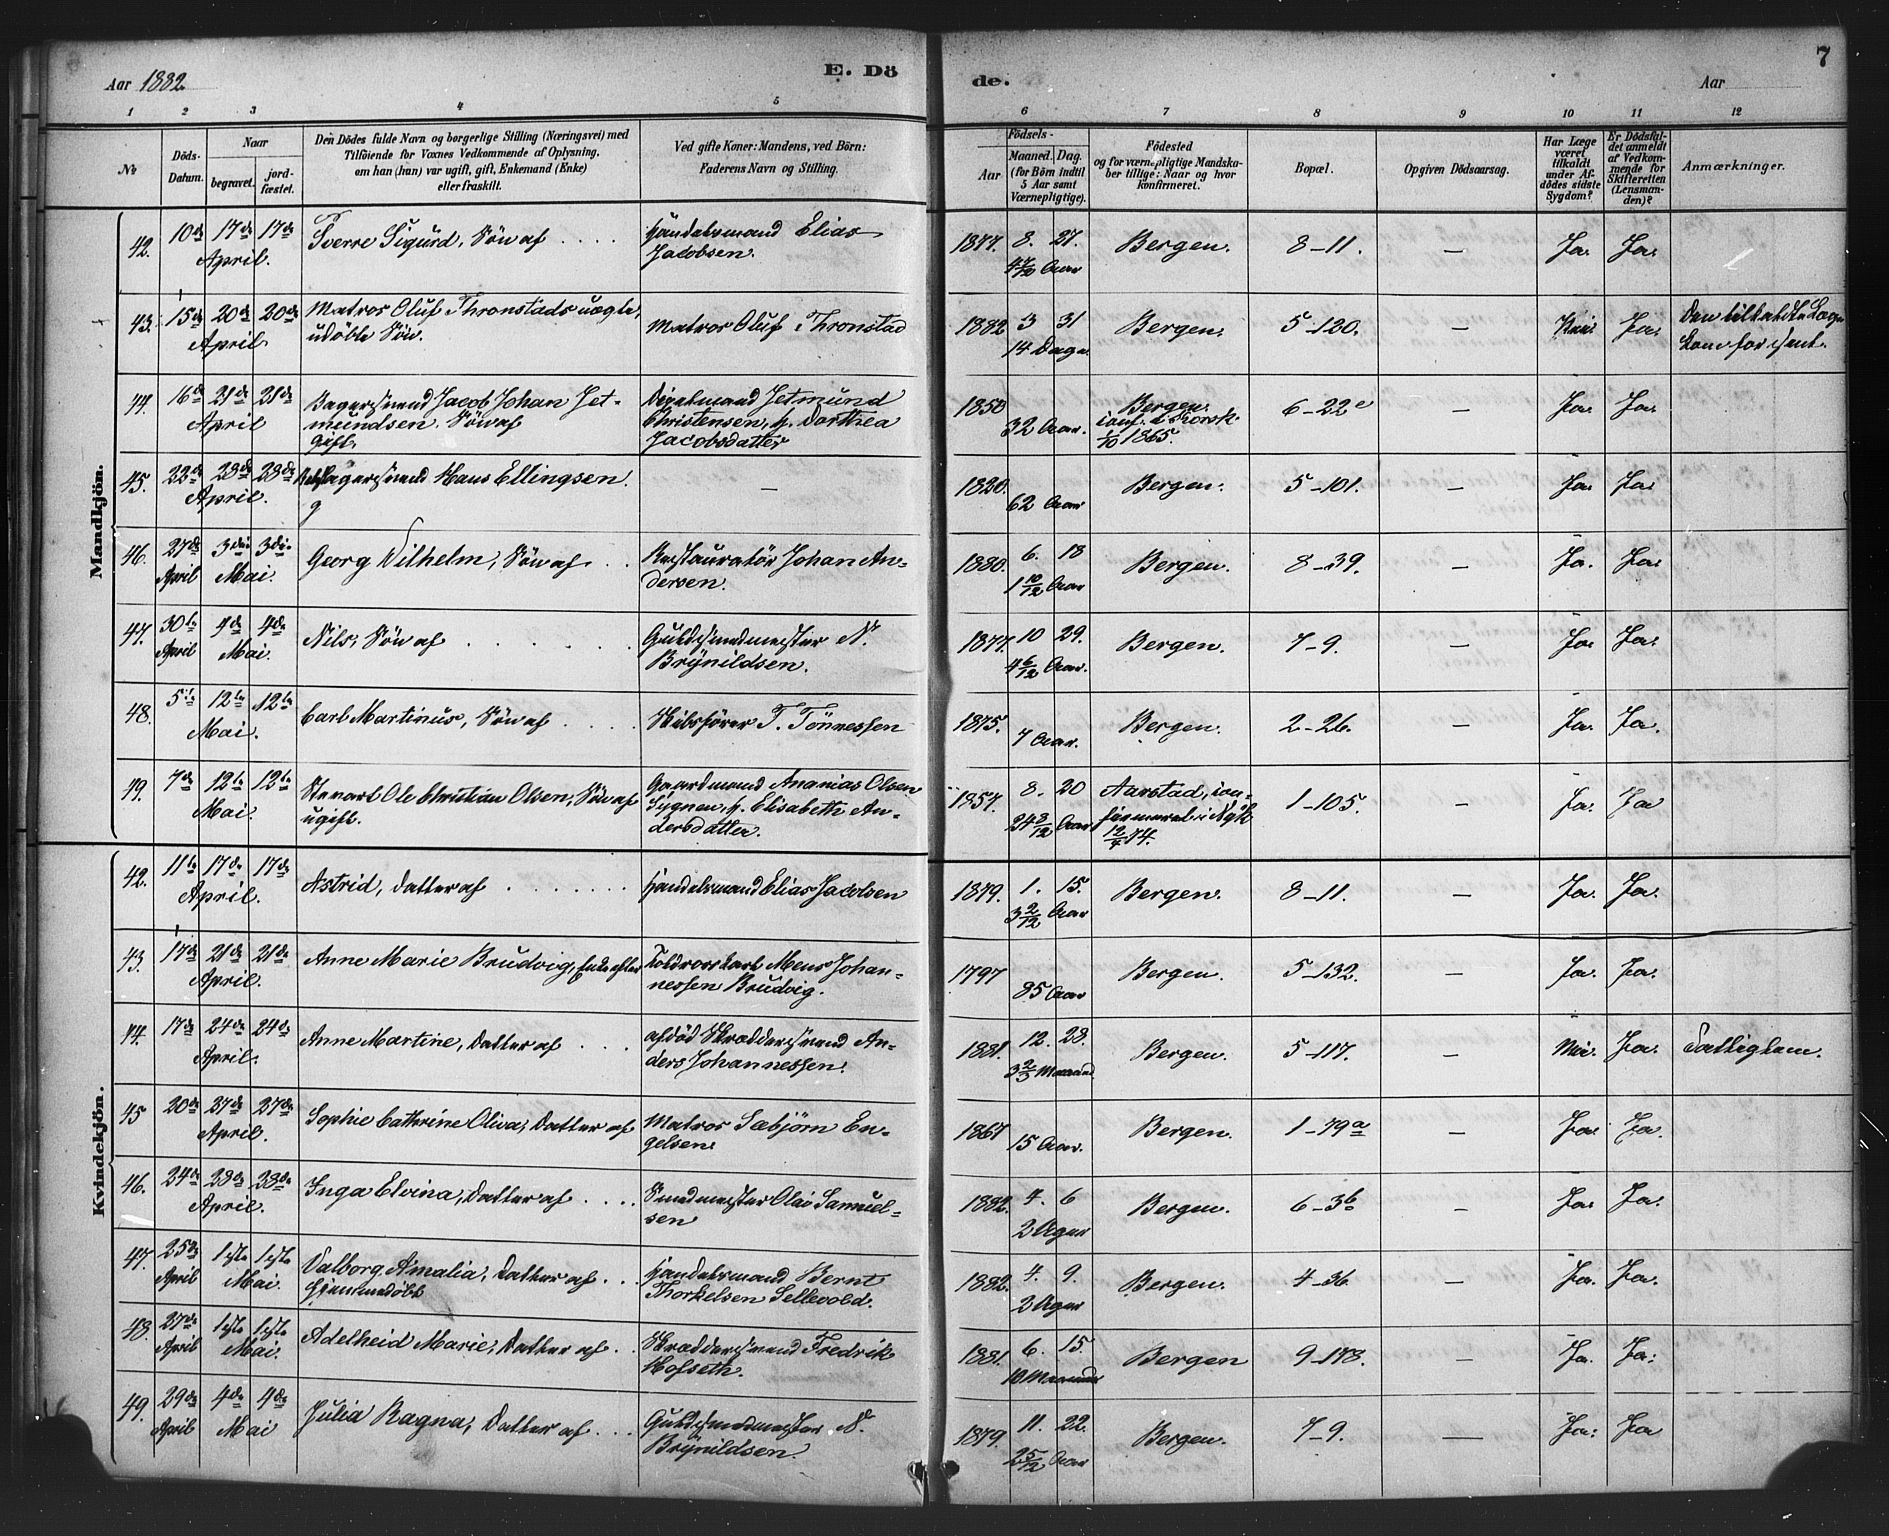 Aar 1882.
E. Döde.
Aar
7
1 2 3 4 5 6 7 8 9 10 11 12
№
Döds-Datum.
Naar
begravet.
jordfæstet.
Den Dödes fulde Navn og borgerlige Stilling (Næringsvei) med
Tilföiende for Voxnes Vedkommende af Oplysning,
om han (hun) var ugift, gift, Enkemand (Enke)
eller fraskilt.
Ved gifte Koner: Mandens, ved Börn:
Faderens Navn og Stilling.
Födsels-
Aar
Maaned. Dag.
(for Börn indtil
5 Aar samt
Værnepligtige).
Födested
og for værnepligtige Mandska-
ber tillige: Naar og hvor
konfirmeret.
Bopæl.
Opgiven Dödsaarsag.
Har Læge
været
tilkaldt
under Af-
dödes sidste
Sygdom?
Er Dödsfal-
det anmeldt
af Vedkom-
mende for
Skifteretten
(Lensman-
den)?
Anmærkninger.
Mandkjön.
42. 10de 17de 17de April. Sverre Sigurd, Søn af . . . . Handelsmand Elias Jacobsen. 1877. 8. 27. 4 7/12 Aar Bergen. 8-11. — Ja. Ja.
43. 15de 20de 20de April Matros Oluf Thronstads uægte, udöbte Søn. Matros Oluf Thronstad 1882 3 31 14 Dage. Bergen. 5-120. — Nei Ja. Den tilkaldte Læge kom for sent.
44. 16de 21de 21de April Bagersvend Jacob Johan Jetmundsen. Søn af Gift. Jetmund Christensen, h. Dorthea Jacobsdatter 1850 32 Aar. Bergen. conf. i Korsk. 1/10 1865. 6-22c — Ja. Ja.
45. 22de 28de 28de April. Bagersvend Hans Ellingsen. g — 1820. 62 Aar Bergen. 5-101. — Ja. Ja.
46. 27de April 3die 3die Mai. Georg Wilhelm, Søn af . . Restauratör Johan Andersen. 1880. 6. 18 1 10/12 Aar Bergen. 8-39. — Ja. Ja.
47. 30te April 4de 4de Mai. Nils, Søn af . . . . . . Guldsmedmester N. Brynildsen. 1877. 10 29. 4 6/12 Aar. Bergen. 7-9. — Ja. Ja.
48. 5te 12te 12te Mai. Carl Martinus, Søn af . . . . Skibsfører T. Tönnessen 1875. 7 Aar. Bergen. 2-26. — Ja. Ja.
49. 7de 12te 12te Mai. Stuvart Ole Christian Olsen, Søn af ugift. Gaardmand Ananias Olsen Sygnen, h. Elisabeth Andersdatter. 1857. 8. 20 24 8/12 Aar Aarstad, confirmeret i Nyk 12/4 74. 1-105. — Ja. Ja
Kvindekjön.
42. 11te 17de 17de April. Astrid, Datter af . . . . . . Handelsmand Elias Jacobsen 1879. 1. 15. 3 2/12 Aar Bergen. 8-11. — Ja. Ja.
43. 17de 21de 21de April. Anne Marie Brudvig, Enke efter Toldroerskarl Mons Johannessen Brudvig. 1797 85 Aar Bergen. 5-132. — Ja. Ja.
44. 17de 24de 24de April. Anne Martine, Datter af . . . afdöd Skræddersvend Anders Johannessen. 1881. 12. 28. 3 2/3 Maaned Bergen. 5-117. — Nei. Ja. Fattiglem.
45 20de 27de 27de April. Sophie Cathrine Oliva, Datter af Matros Sæbjörn Engelsen. 1867 15 Aar. Bergen. 1-79a — Ja. Ja.
46. 24de 28de 28de April. Inga Elvina, Datter af . . . . Smedmester Olai Samuelsen 1882. 4. 6 2 Uger Bergen. 6-3b — Ja. Ja.
47. 25de April 1ste 1ste Mai. Valborg Amalia, Datter af . . . Hjemmedöbt Handelsmand Bernt Thorkelsen Sellevold. 1882. 4. 9. 2 Uger Bergen. 4-36 — Ja. Ja.
48. 27de April 1ste 1ste Mai. Adelheid Marie, Datter af . . Skræddersvend Fredrik Hofseth. 1881. 6. 15. 10 Maaneder Bergen 9-178. — Ja. Ja.
49. 29de April 4de 4de Mai Julia Ragna, Datter af . . . Guldsmedmester N. Brynildsen. 1879. 11. 22. 2 5/12 Aar Bergen. 7-9. — Ja. Ja